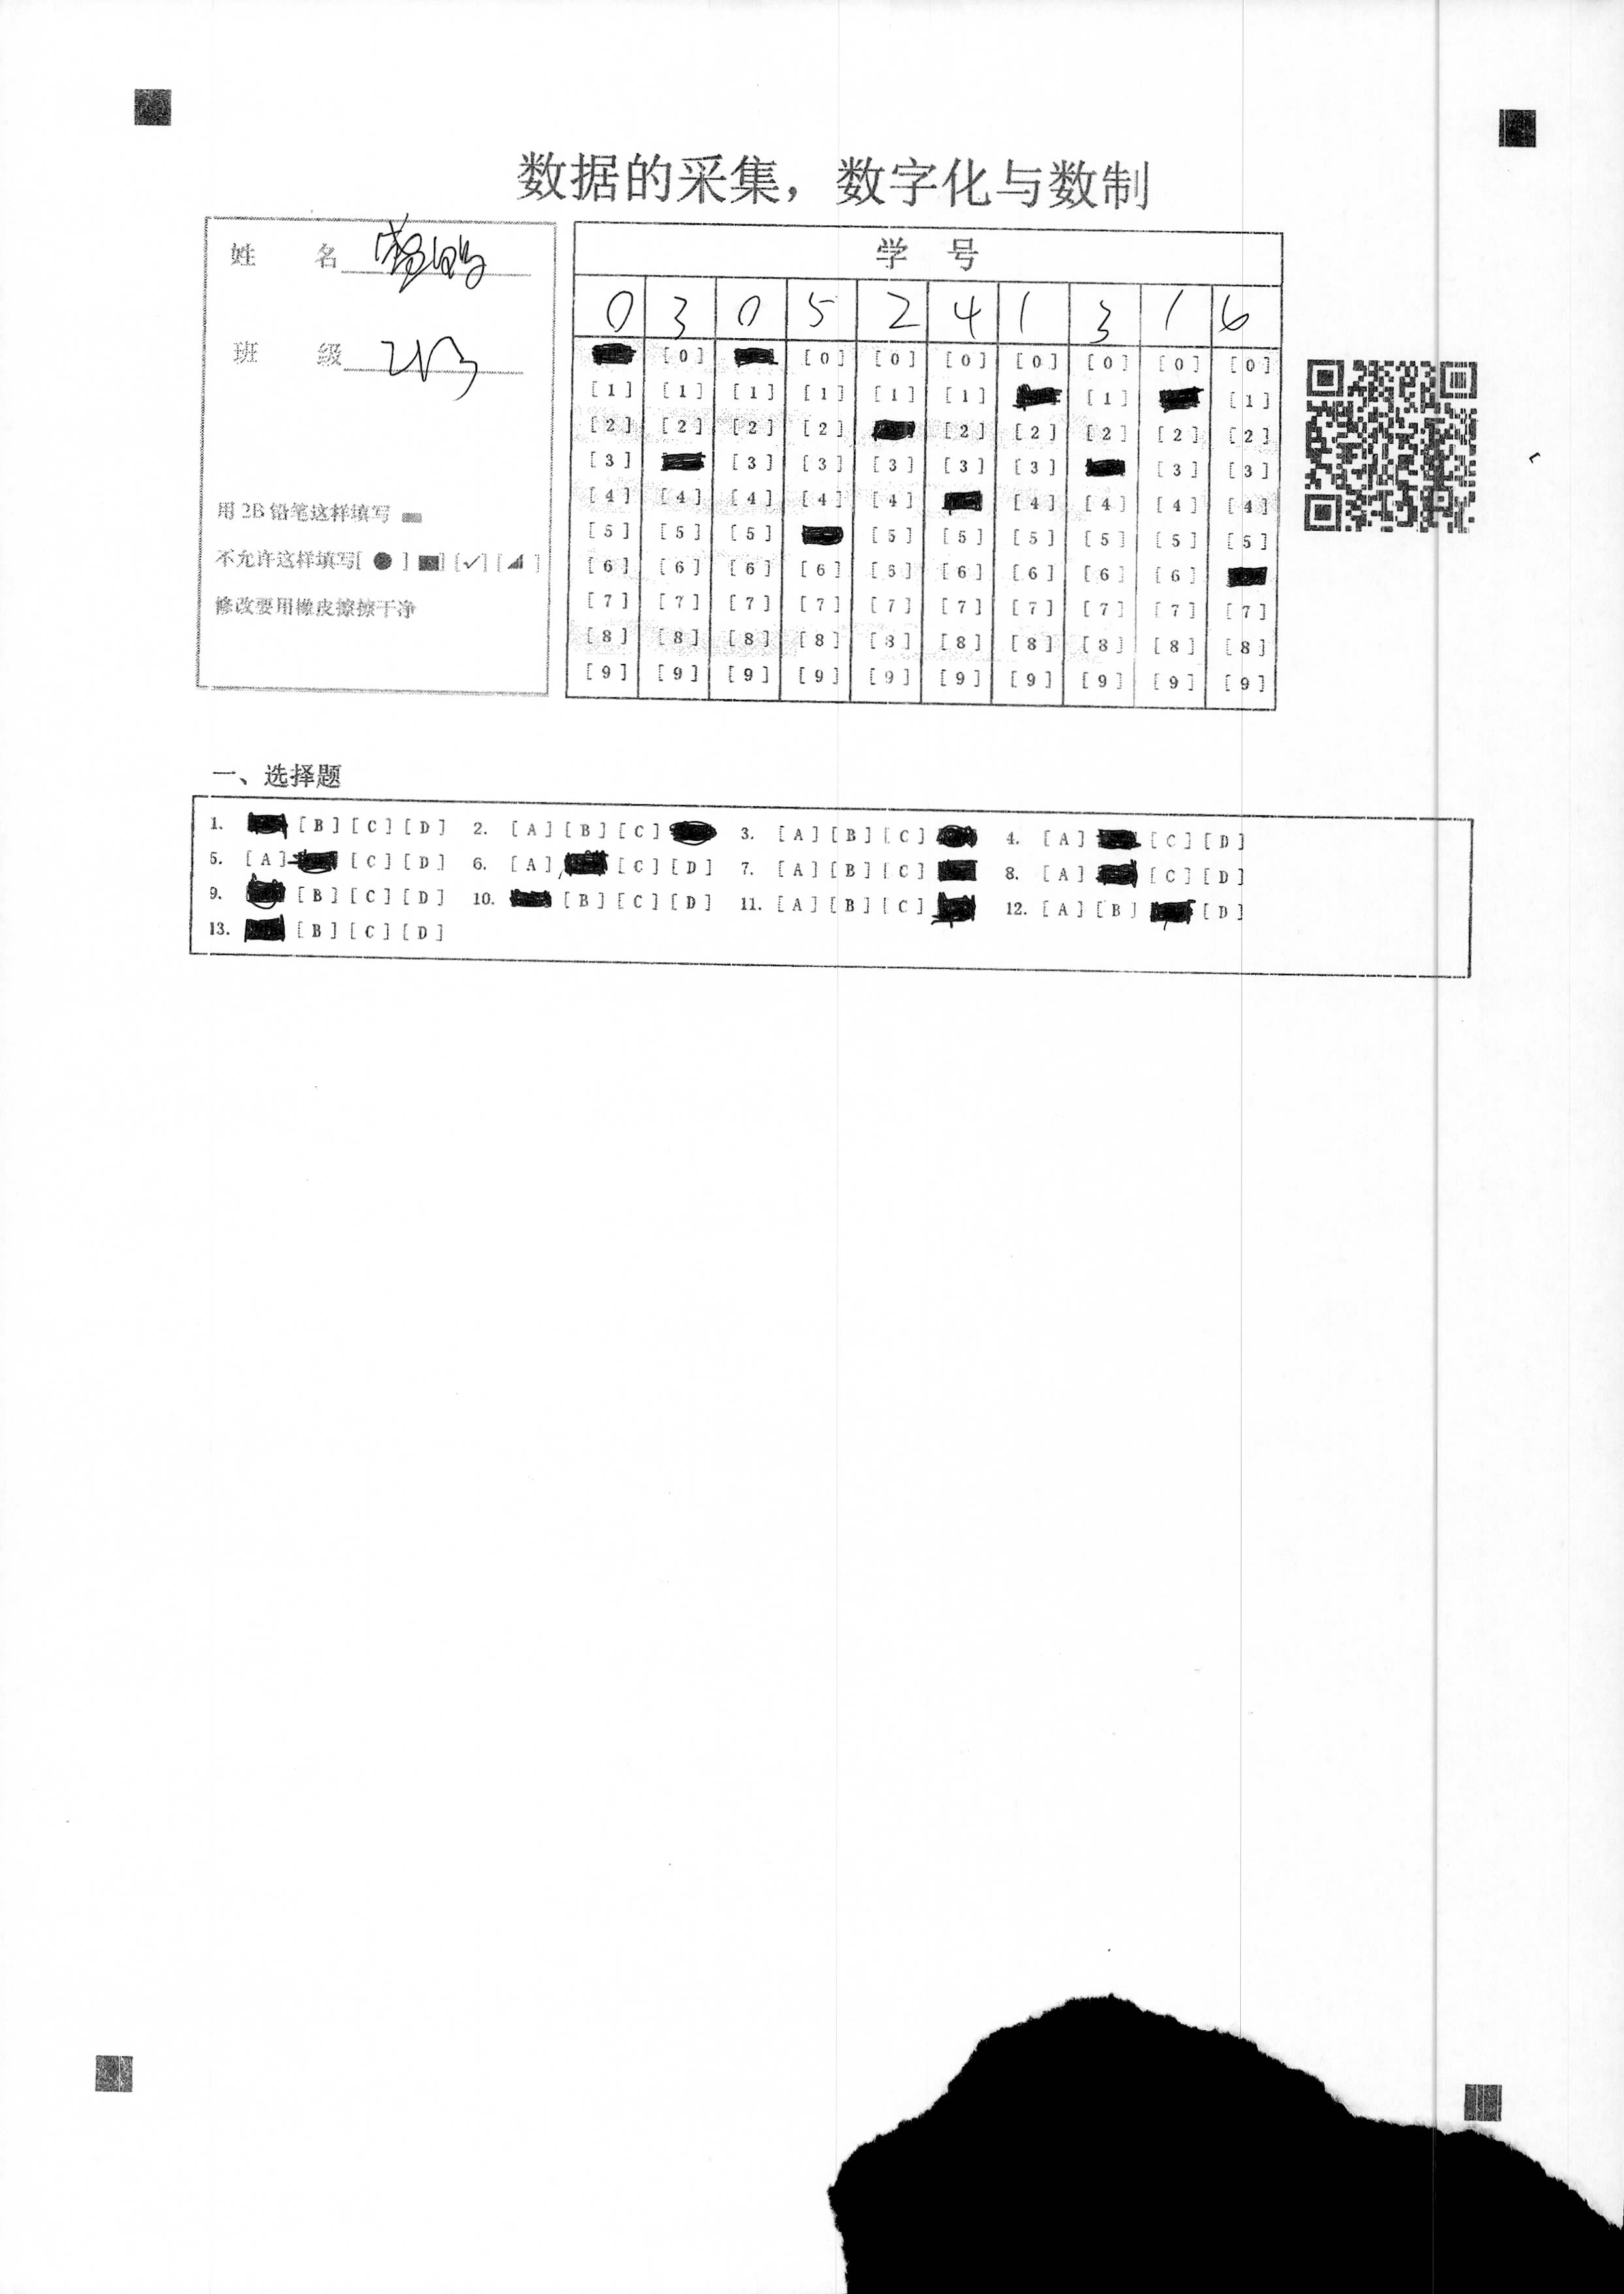 数据的采集，数字化与数制
姓 名
班 级 213
用 2B 铅笔这样填写
不允许这样填写[ ● ] [■] [✓] [◢ ]
修改要用橡皮擦擦干净
学 号
0 3 0 5 2 4 1 3 1 6
[0] [0] [0] [0] [0] [0] [0] [0]
[1] [1] [1] [1] [1] [1] [1] [1]
[2] [2] [2] [2] [2] [2] [2] [2] [2]
[3] [3] [3] [3] [3] [3] [3] [3]
[4] [4] [4] [4] [4] [4] [4] [4] [4]
[5] [5] [5] [5] [5] [5] [5] [5] [5]
[6] [6] [6] [6] [6] [6] [6] [6] [6]
[7] [7] [7] [7] [7] [7] [7] [7] [7] [7]
[8] [8] [8] [8] [8] [8] [8] [8] [8] [8]
[9] [9] [9] [9] [9] [9] [9] [9] [9] [9]
一、选择题
1. [B] [C] [D] 2. [A] [B] [C] 3. [A] [B] [C] 4. [A] [C] [D]
5. [A] [C] [D] 6. [A] [C] [D] 7. [A] [B] [C] 8. [A] [C] [D]
9. [B] [C] [D] 10. [B] [C] [D] 11. [A] [B] [C] 12. [A] [B] [D]
13. [B] [C] [D]